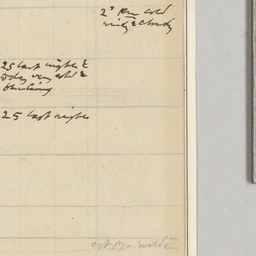 2° Raw cold
windy & cloudy
25 last night &
today very cold &
blustering
25 last night